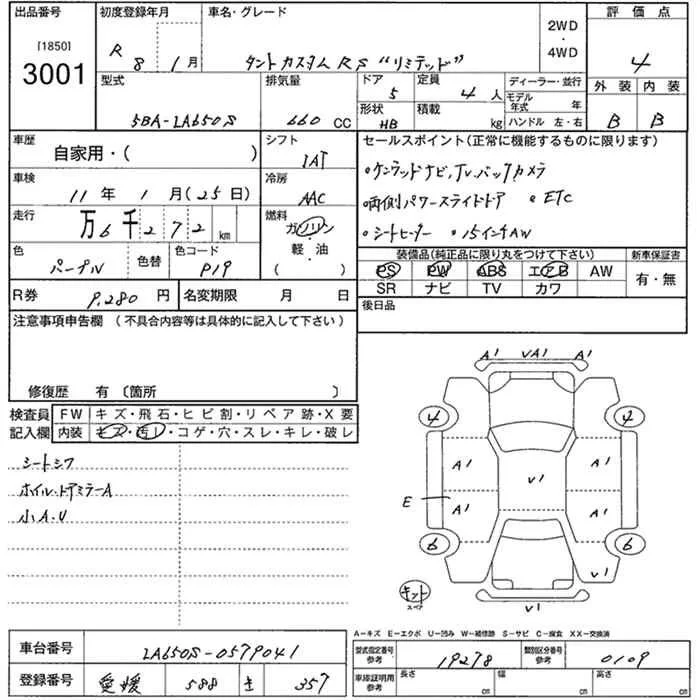 出品番号 初度登録年月 車名・グレード 評価点
[1850] 3001
R 8 1月 タントカスタムRS "リミテッド" 2WD ・ 4WD 4
型式 排気量 ドア 定員 ディーラー・並行 外装 内装
5BA-LA650S 660 CC 5 4人 モデル年式 年 B B
形状 積載 HB kg ハンドル 左・右
車歴 シフト セールスポイント(正常に機能するものに限ります)
自家用・( ) IAT
・ケンウッドナビ,Tv.バックカメラ
車検 冷房
11年 1月(25日) AAC
・両側パワースライドドア ・ETC
走行 燃料
万6千272km ガソリン・軽・油( )
・シートヒーター ・15インチAW
色 色替 色コード
パープル P19
装備品(純正品に限り丸をつけて下さい) 新車保証書
PS PW ABS エアB AW 有・無
SR ナビ TV カワ
R券 9,280円 名変期限 月 日
後日品
注意事項申告欄 (不具合内容等は具体的に記入して下さい)
修復歴 有〔箇所 〕
検査員記入欄 FW キズ・飛石・ヒビ割・リペア跡・X要
内装 キズ・汚レ・コゲ・穴・スレ・キレ・破レ
シートシワ
ホイル・ドアミラーA
小A.U
A1 VA1 A1
4 4
A1 A1
V1
E A1 A1
6 6
V1
キット
スペア
V1
A-キズ E-エクボ U-凹み W-補修跡 S-サビ C-腐食 XX-交換済
車台番号 LA650S-0579041
型式指定番号 参考 19278 類別区分番号 参考 0109
登録番号 愛媛 588 き 357
車庫証明用 参考 長さ cm 幅 cm 高さ cm